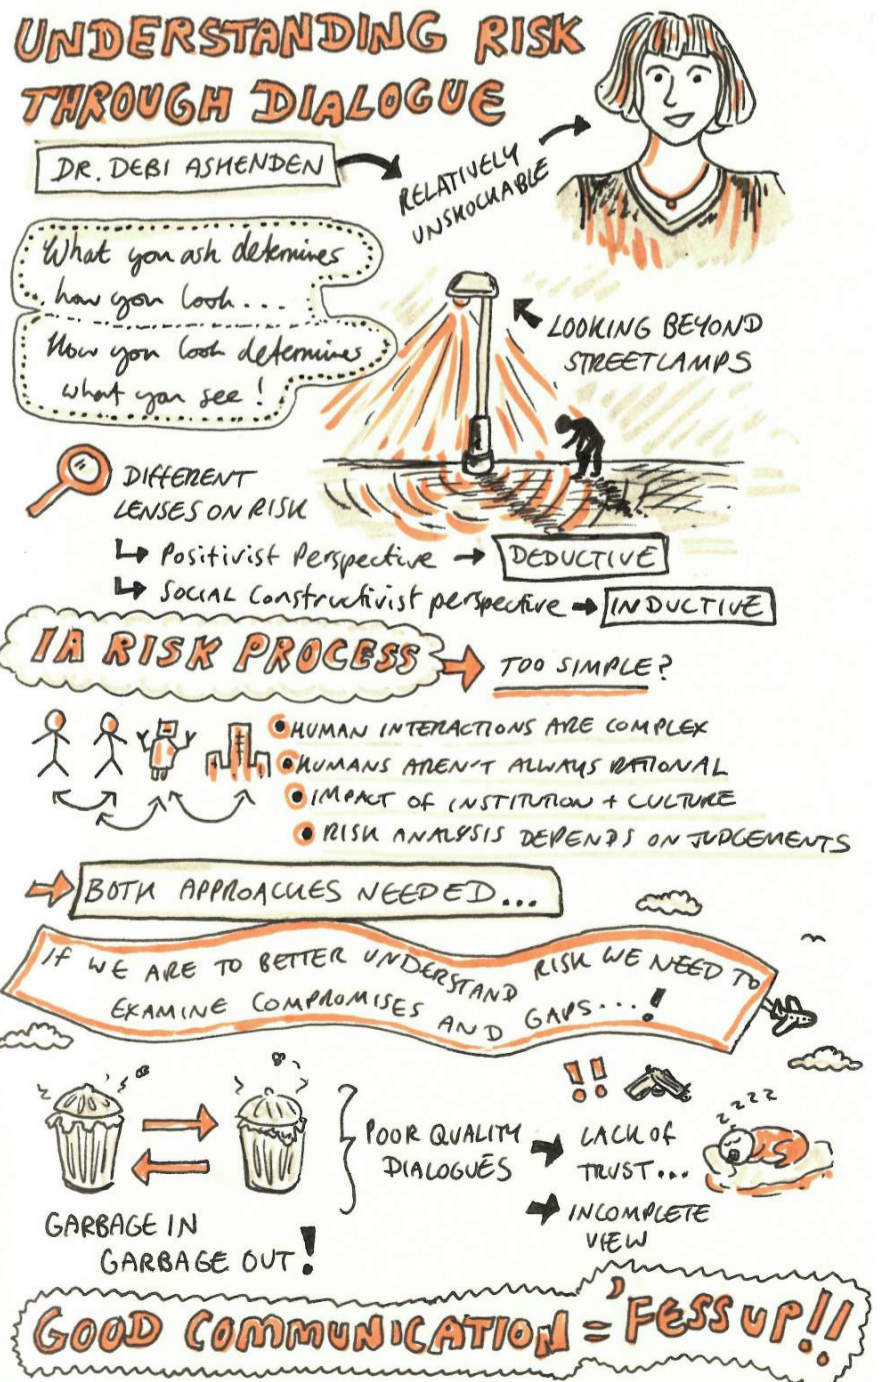 UNDERSTANDING RISK
THROUGH DIALOGUE
DR. DEBI ASHENDEN
RELATIVELY
UNSHOCKABLE
What you ask determines
how you look...
How you look determines
what you see!
LOOKING BEYOND
STREETLAMPS
DIFFERENT
LENSES ON RISK
Positivist Perspective → DEDUCTIVE
SOCIAL Constructivist perspective → INDUCTIVE
IA RISK PROCESS → TOO SIMPLE?
HUMAN INTERACTIONS ARE COMPLEX
HUMANS AREN'T ALWAYS RATIONAL
IMPACT OF INSTITUTION + CULTURE
RISK ANALYSIS DEPENDS ON JUDGEMENTS
BOTH APPROACHES NEEDED...
IF WE ARE TO BETTER UNDERSTAND RISK WE NEED TO
EXAMINE COMPROMISES AND GAPS...!
!!
zzzz
POOR QUALITY
DIALOGUES
LACK OF
TRUST...
INCOMPLETE
VIEW
GARBAGE IN
GARBAGE OUT!
GOOD COMMUNICATION = 'FESS UP!!